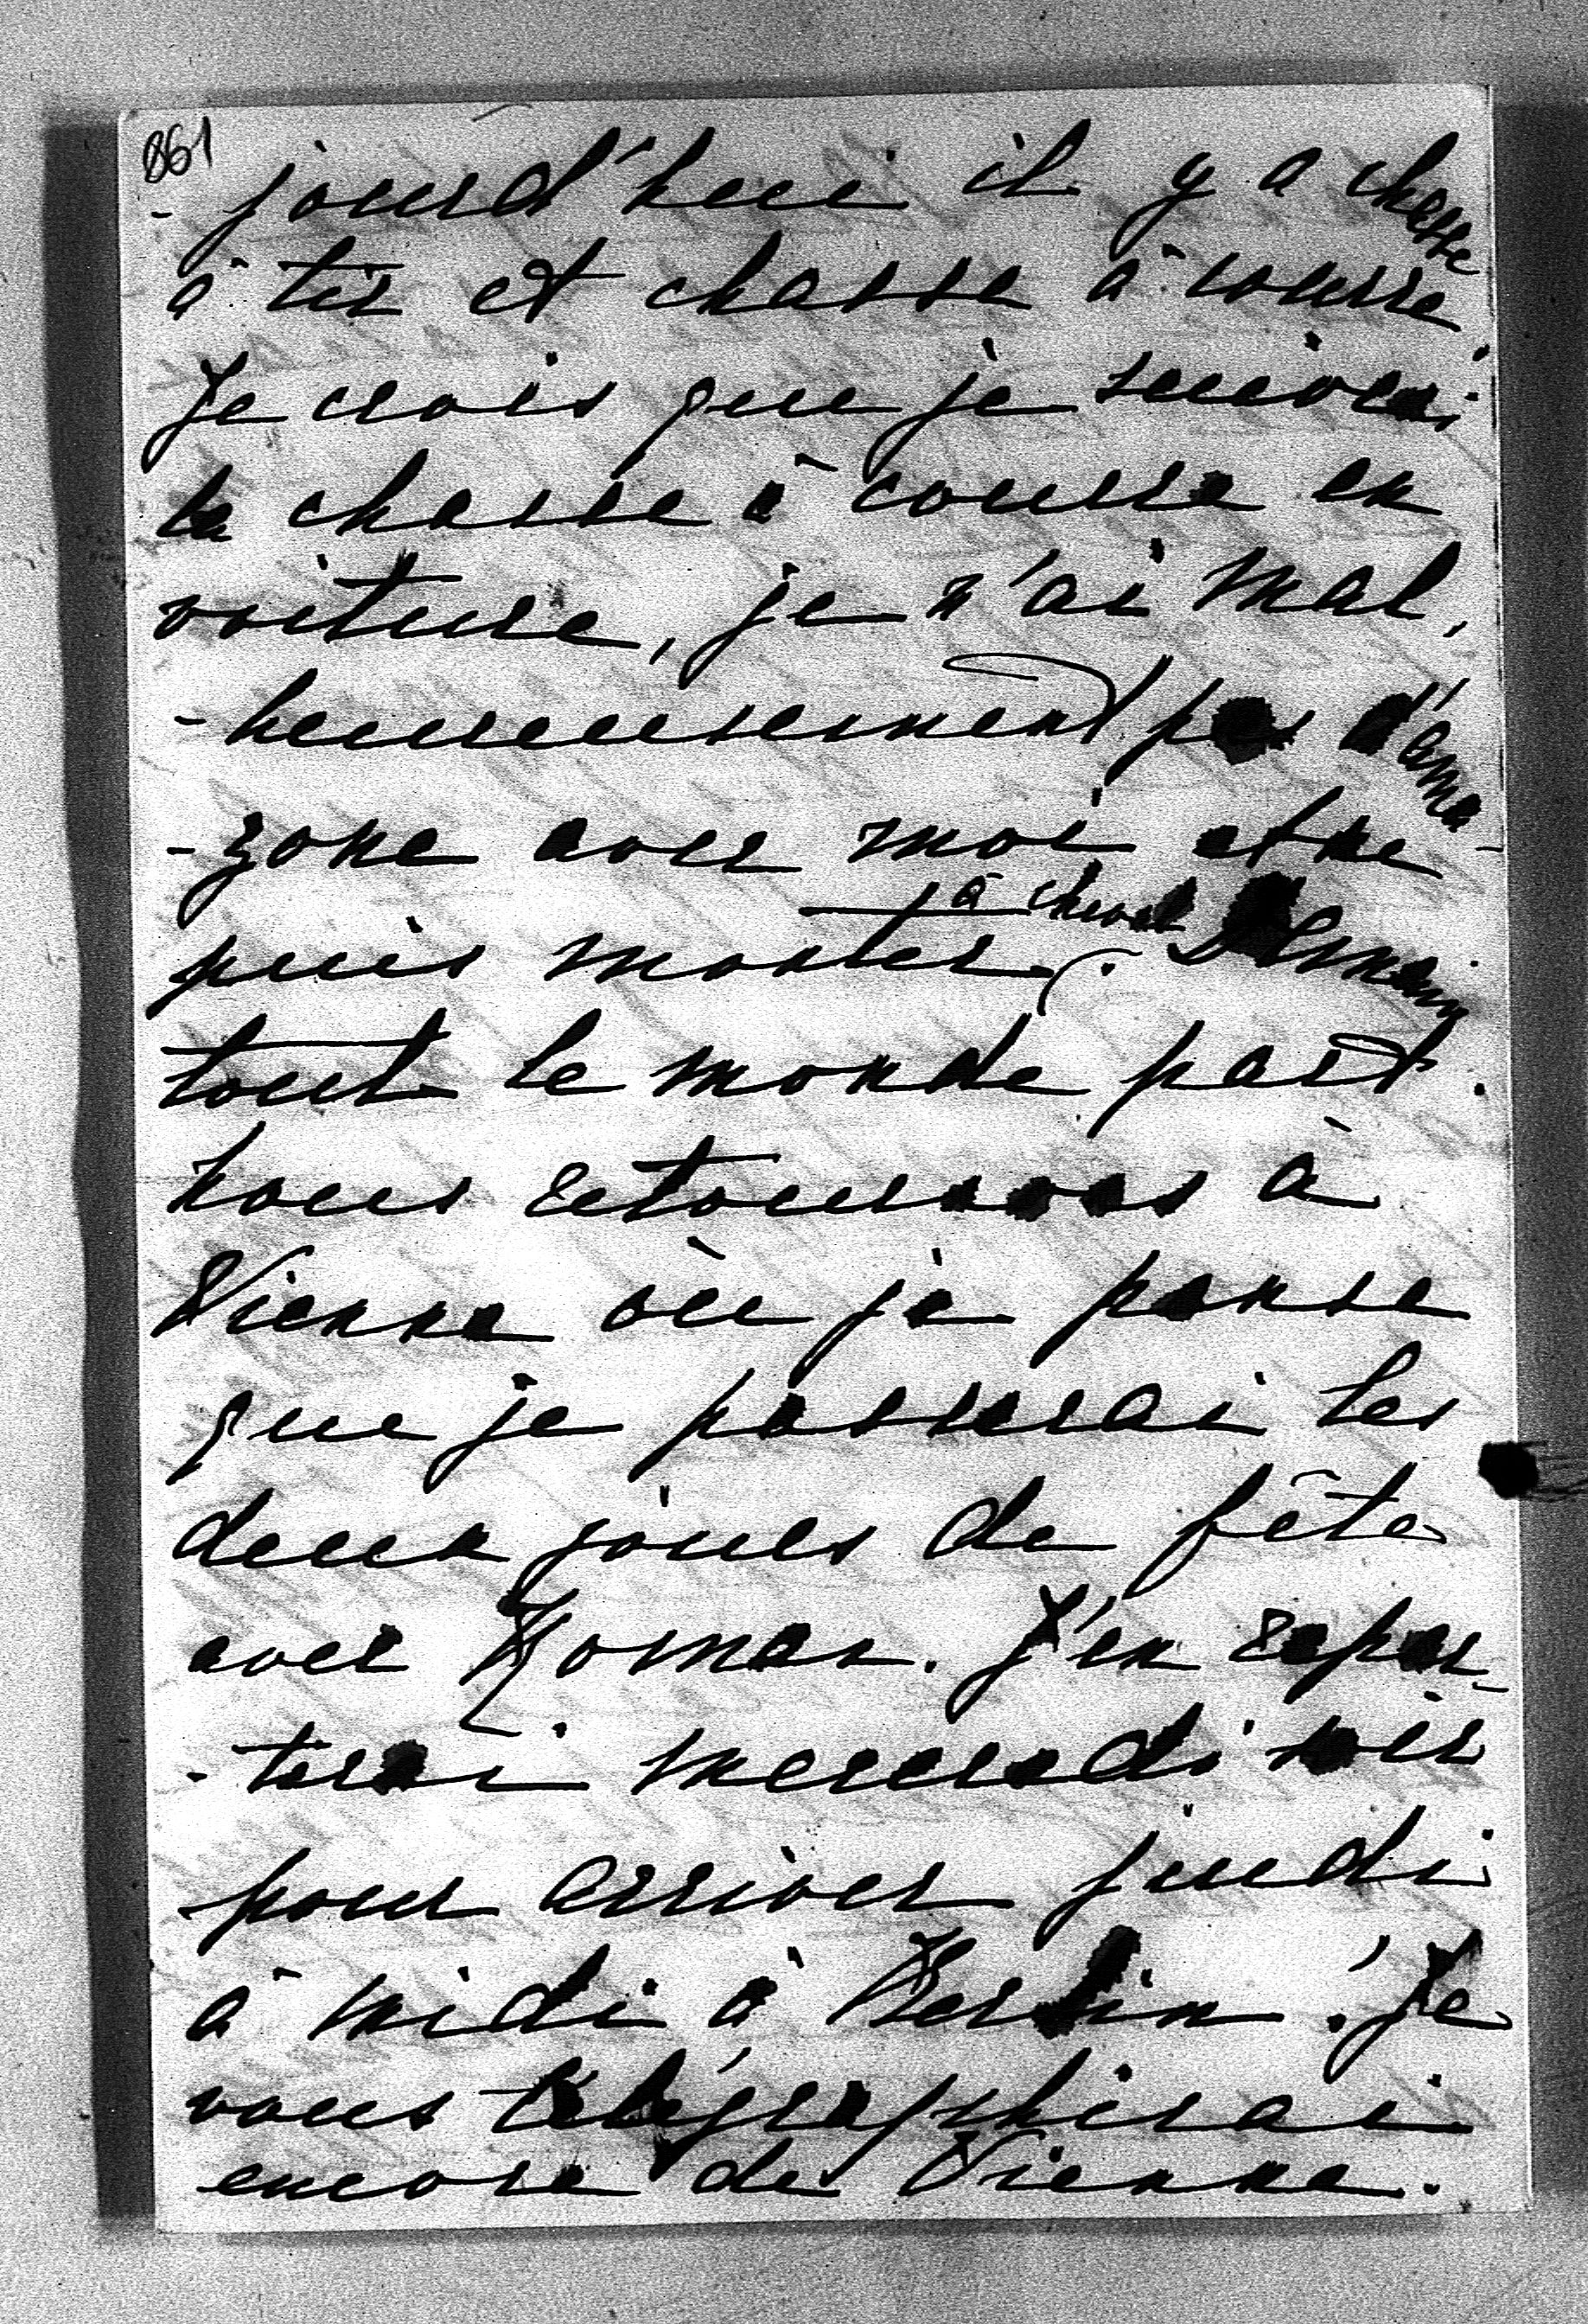 861
- jourd'hui il y a chasse
à tir et chasse à courre.
Je crois que je suivrai
la chasse à courre en
voiture, je n'ai mal,
- heureusement pas d'ama-
- zone avec moi et ne
puis monter à cheval. Demain
tout le monde part.
Nous retournons à
Vienne où je pense
que je passerai les
deux jours de fête
avec Roman. J'en repar-
- tirai mercredi soir
pour arriver jeudi
à midi à Berlin. Je
vous télégraphierai
encore de Vienne.